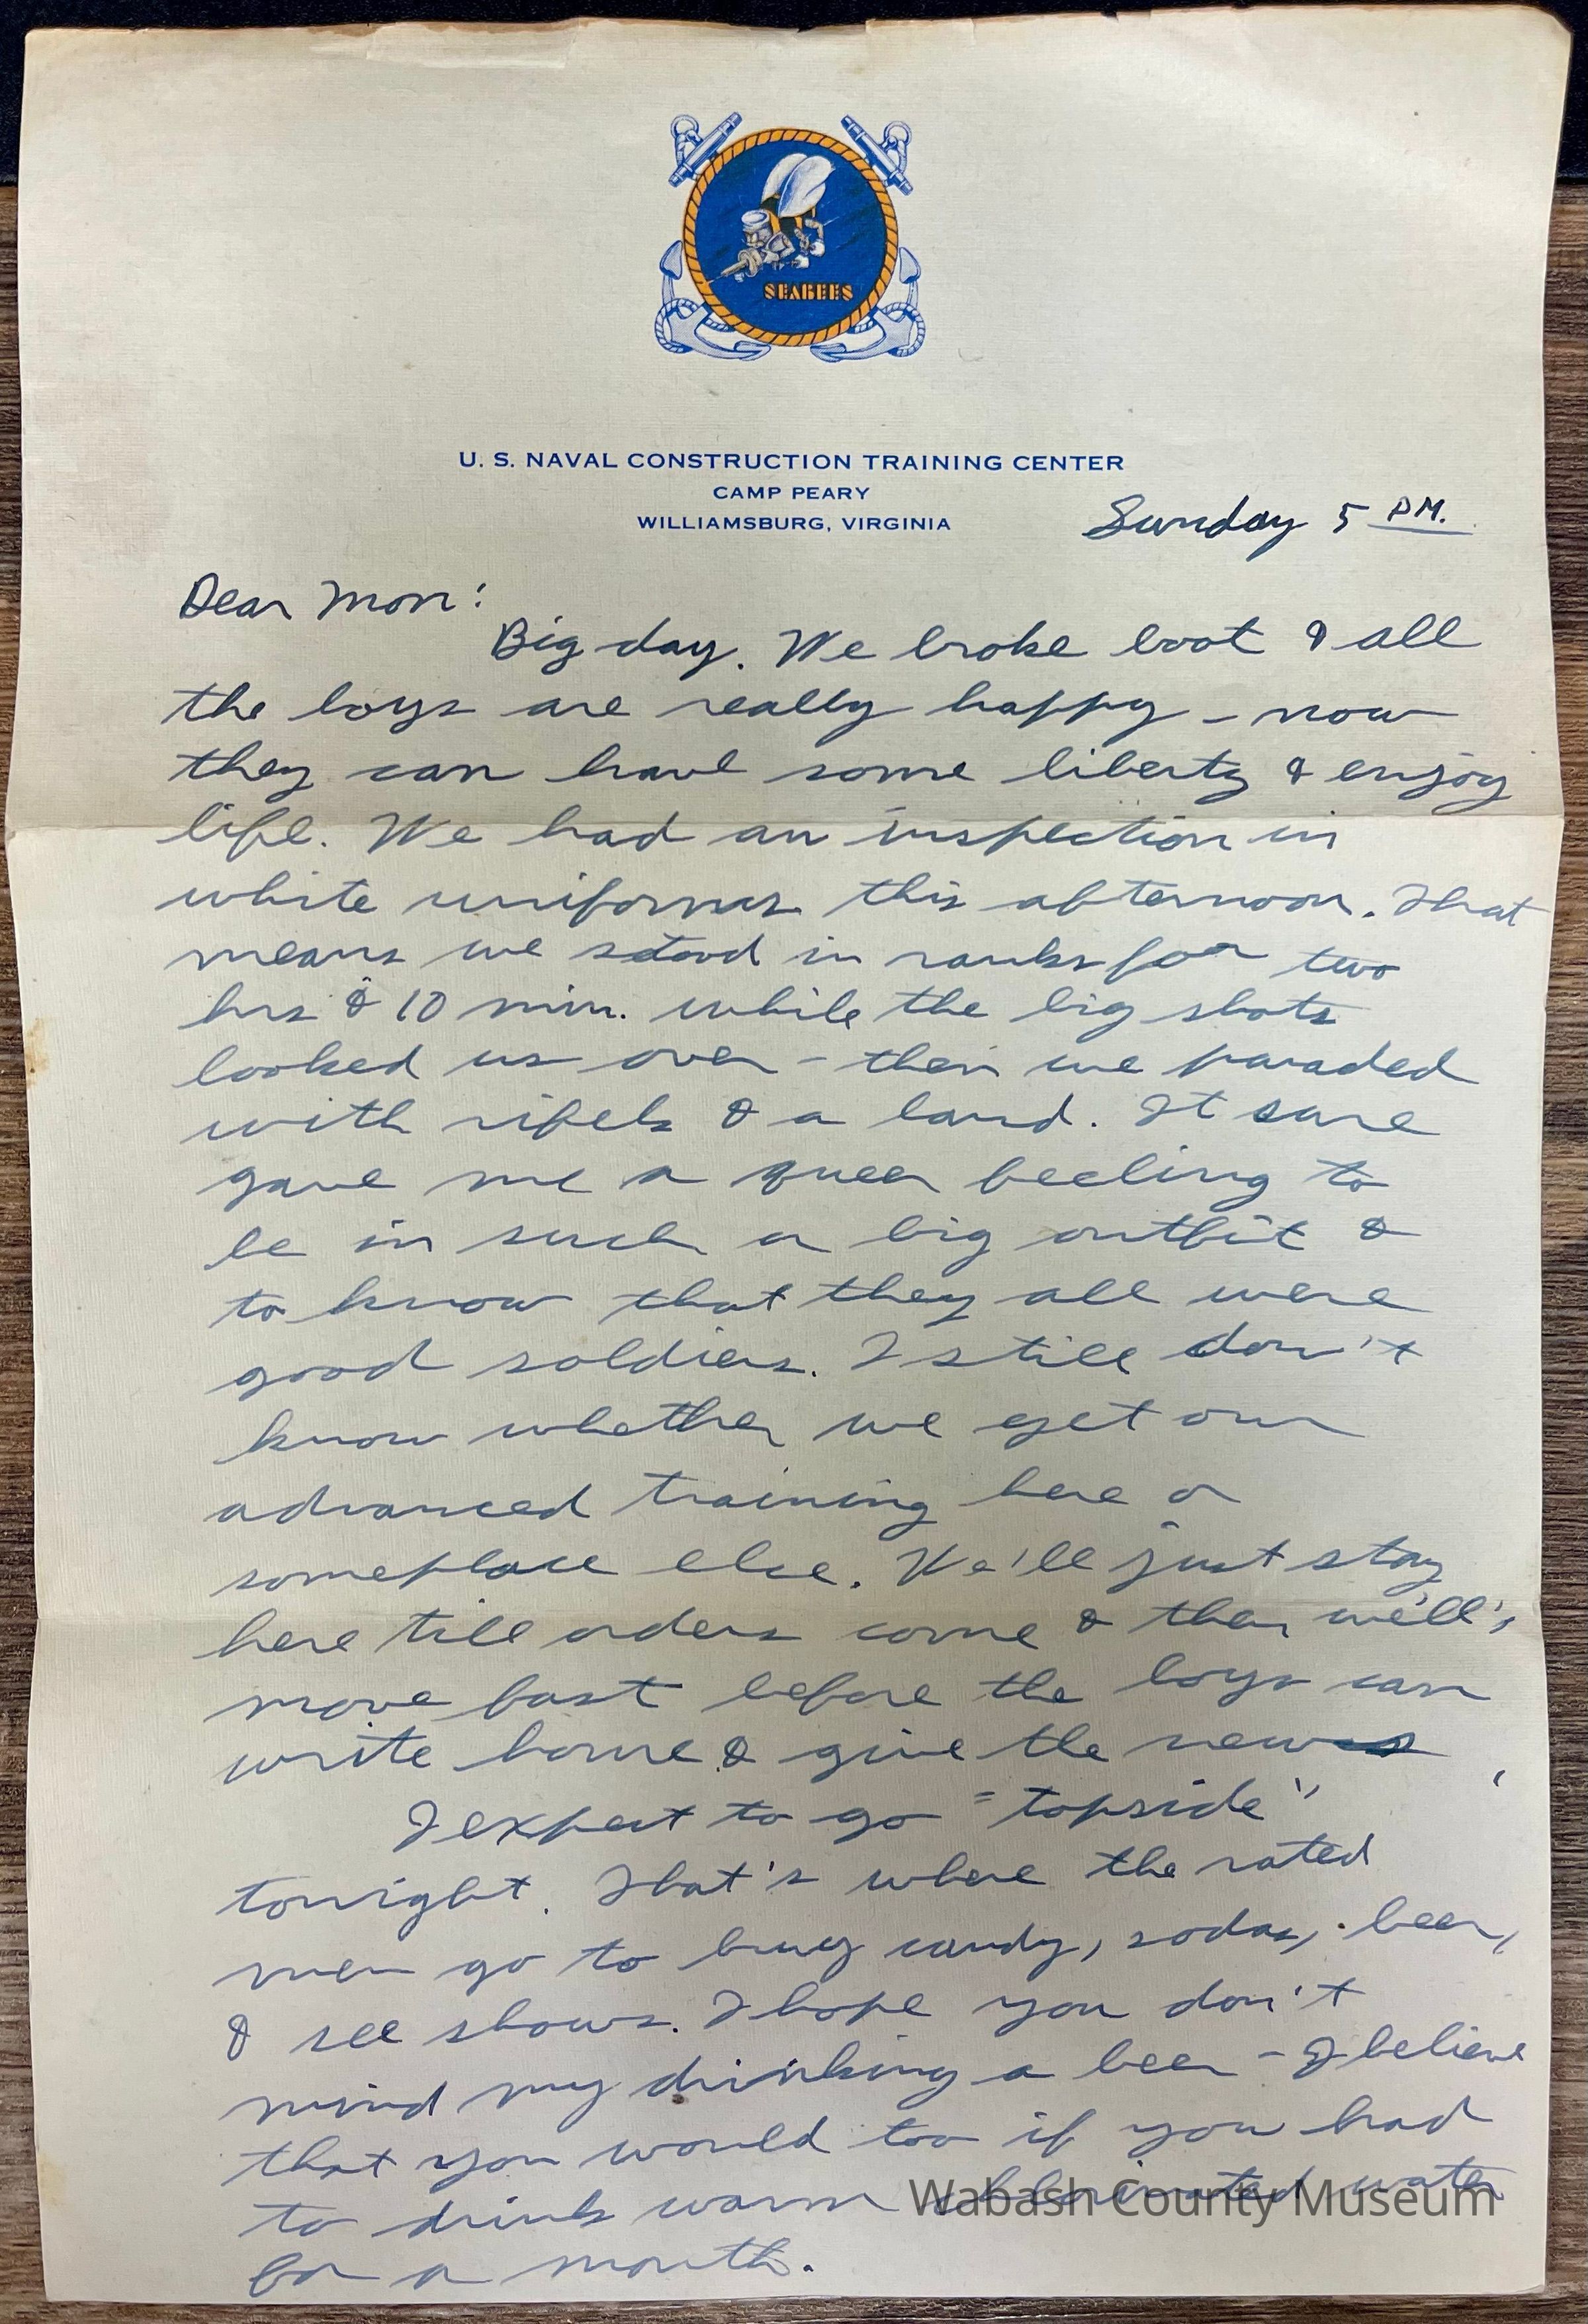 SEABEES
U. S. NAVAL CONSTRUCTION TRAINING CENTER
CAMP PEARY
WILLIAMSBURG, VIRGINIA
Sunday 5 PM.
Dear Mom:
Big day. We broke boot & all
the boys are really happy - now
they can have some liberty & enjoy
life. We had an inspection in
white uniforms this afternoon. That
means we stood in ranks for two
hrs & 10 min. while the big shots
looked us over - then we paraded
with rifels & a band. It sure
gave me a queer feeling to
be in such a big outfit &
to know that they all were
good soldiers. I still don't
know whether we get our
advanced training here or
someplace else. We'll just stay
here till orders come & then we'll
move fast before the boys can
write home & give the news
I expect to go "topside"
tonight. That's where the rated
men go to buy candy, sodas, beer,
& see shows. I hope you don't
mind my drinking a beer - I believe
that you would too if you had
to drink warm chlorinated water
for a month.
Wabash County Museum